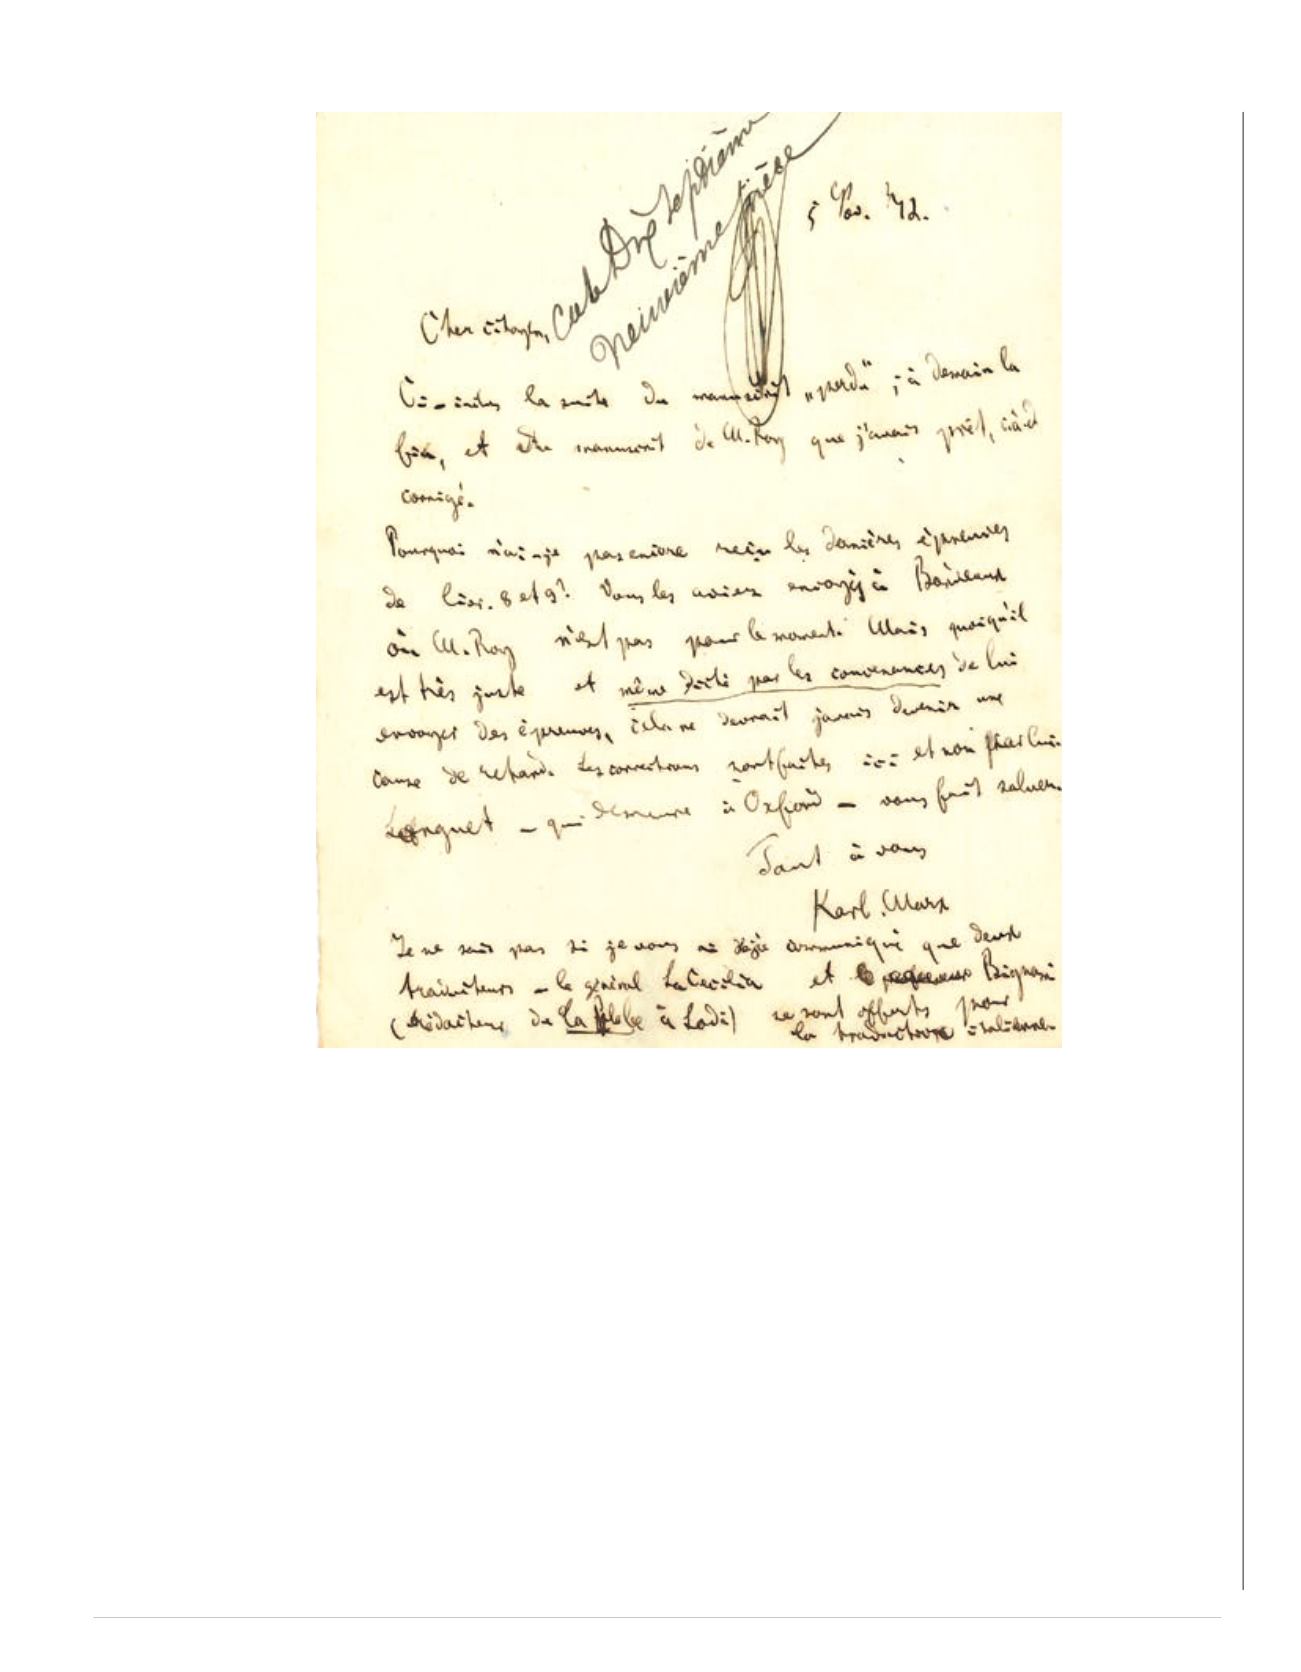 Cote Dix septième
Neuvième pièce
5 Nov. 72.
Cher citoyen,
Ci-inclus la suite du manuscrit „perdu“; à demain la
fin, et du manuscrit de M. Roy que j'avais prêt, c.à.d
corrigé.
Pourquoi n'ai-je pas encore reçu les dernières épreuves
de livr. 8 et 9? Vous les aviez envoyé à Bordeaux
où M. Roy n'est pas pour le moment. Mais quoiqu'il
est très juste et même dicté par les convenances de lui
envoyer des épreuves, cela ne devrait jamais devenir une
cause de retard. Les corrections sont faites ici et non par lui.
Longuet – qui demeure à Oxford – vous fait saluer.
Tout à vous
Karl Marx
Je ne sais pas si je vous ai déjà communiqué que deux
traducteurs – le général La Cecilia et Bignami
(rédacteur de La Plebe à Lodi) se sont offerts pour
la traduction italienne.